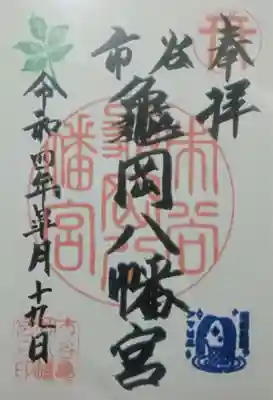 奉拝
市谷
龜岡八幡宮
令和四年 月十九日
市谷
幡宮